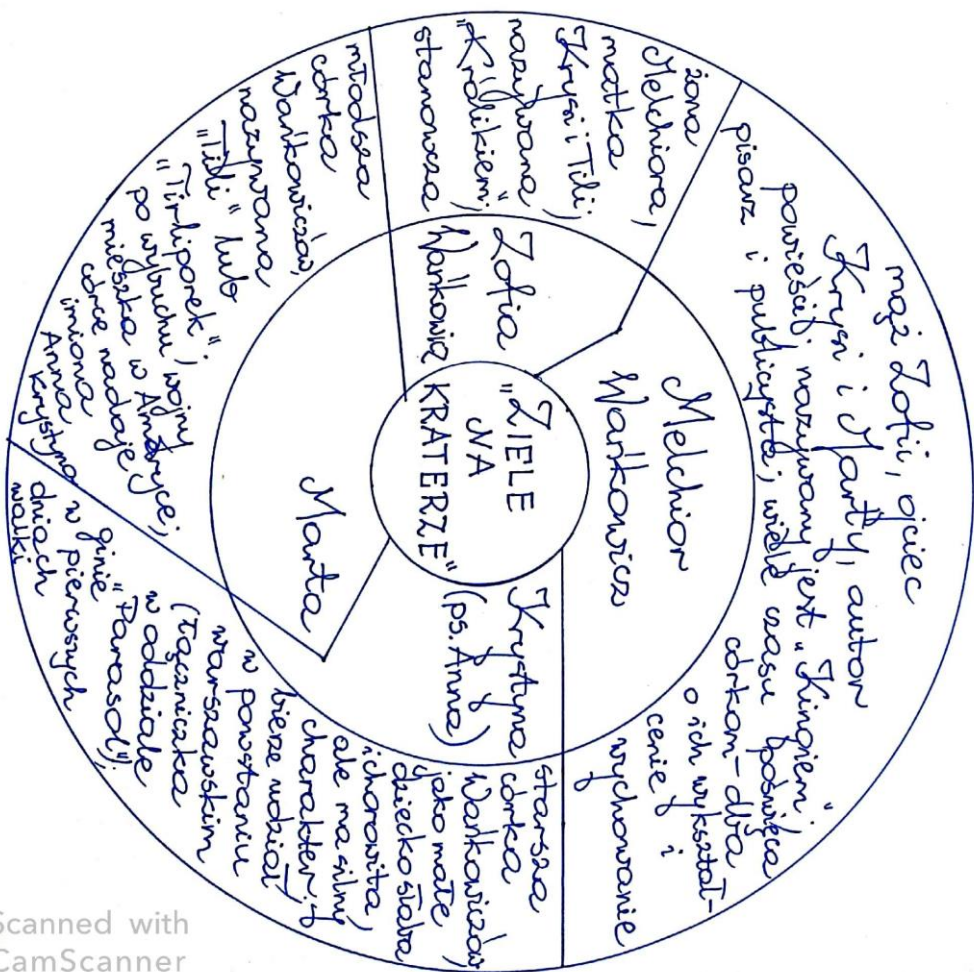 "ZIELE
NA
KRATERZE"
Melchior
Wańkowicz
mąż Zofii, ojciec
Krysi i Marty, autor
powieści, nazywany jest "Kingiem";
pisarz i publicysta; wiele czasu poświęca
córkom - dba
o ich wykształ-
cenie i
wychowanie
Krystyna
(ps. Anna)
starsza
córka
Wańkowiczów,
jako małe
dziecko słaba
i chorowita,
ale ma silny
charakter;
bierze udział
w powstaniu
warszawskim
(łączniczka
w oddziale
"Parasol");
ginie
w pierwszych
dniach
walki
Marta
młodsza
córka
Wańkowiczów,
nazywana
"Tili" lub
"Tirliporek";
po wybuchu wojny
mieszka w Ameryce;
córce nadaje
imiona
Anna
Krystyna
Zofia
Wańkowicz
żona
Melchiora,
matka
Krysi i Tili;
nazywana
"Królikiem";
stanowcza
Scanned with
CamScanner